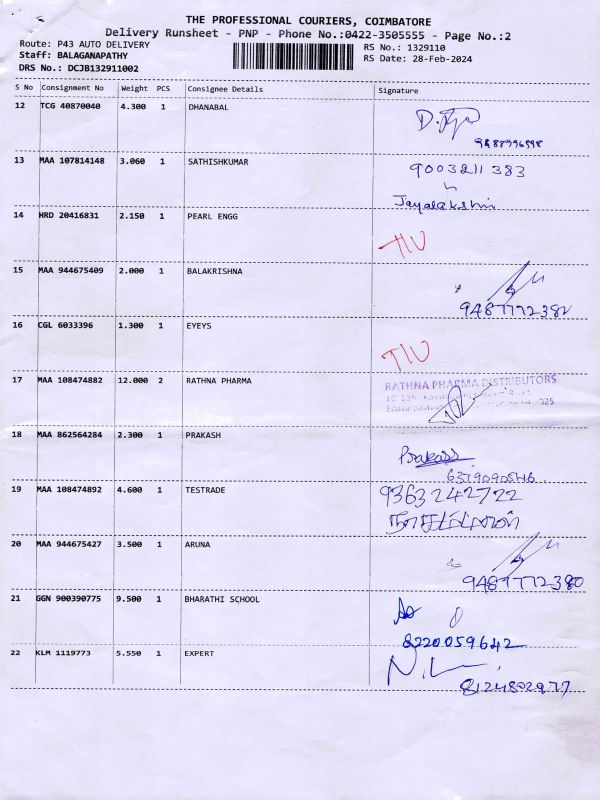 THE PROFESSIONAL COURIERS, COIMBATORE
Delivery Runsheet - PNP - Phone No.:0422-3505555 - Page No.:2
Route: P43 AUTO DELIVERY RS No.: 1329110
Staff: BALAGANAPATHY RS Date: 28-Feb-2024
DRS No.: DCJB132911002
S No Consignment No Weight PCS Consignee Details Signature
12 TCG 40870040 4.300 1 DHANABAL
13 MAA 107814148 3.060 1 SATHISHKUMAR 9003211383
Jayalakshmi
14 HRD 20416831 2.150 1 PEARL ENGG
15 MAA 944675409 2.000 1 BALAKRISHNA
9487772382
16 CGL 6033396 1.300 1 EYEYS
17 MAA 108474882 12.000 2 RATHNA PHARMA RATHNA PHARMA DISTRIBUTORS
18 MAA 862564284 2.300 1 PRAKASH
Prakash
19 MAA 108474892 4.600 1 TESTRADE 9363242722
20 MAA 944675427 3.500 1 ARUNA
9487772380
21 GGN 900390775 9.500 1 BHARATHI SCHOOL
8220059642
22 KLM 1119773 5.550 1 EXPERT
8124802977